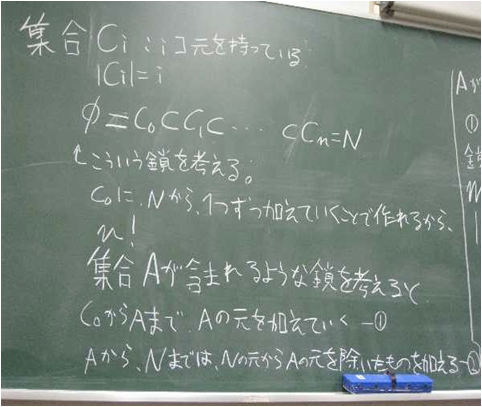 集合 Ci : i コ元を持っている
|Ci|=i
φ=C₀⊂C₁⊂… ⊂Cn=N
↑こういう鎖を考える。
C₀に、Nから、1つずつ加えていくことで作れるから、
n!
集合Aが含まれるような鎖を考えると
C₀からAまで Aの元を加えていく ―①
Aから、Nまでは、Nの元からAの元を除いたものを加える―②
Aが
①
鎖
n